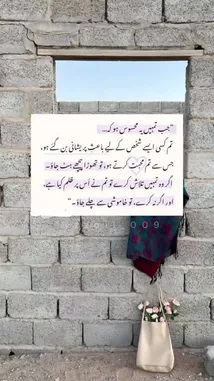 "جب تمہیں یہ محسوس ہو کہ...
تم کسی ایسے شخص کے لیے باعثِ پریشانی بن گئے ہو،
جس سے تم محبت کرتے ہو، تو تھوڑا پیچھے ہٹ جاؤ۔
اگر وہ تمہیں تلاش کرے تو تم نے اُس پر ظلم کیا ہے،
اور اگر نہ کرے، تو خاموشی سے چلے جاؤ۔"